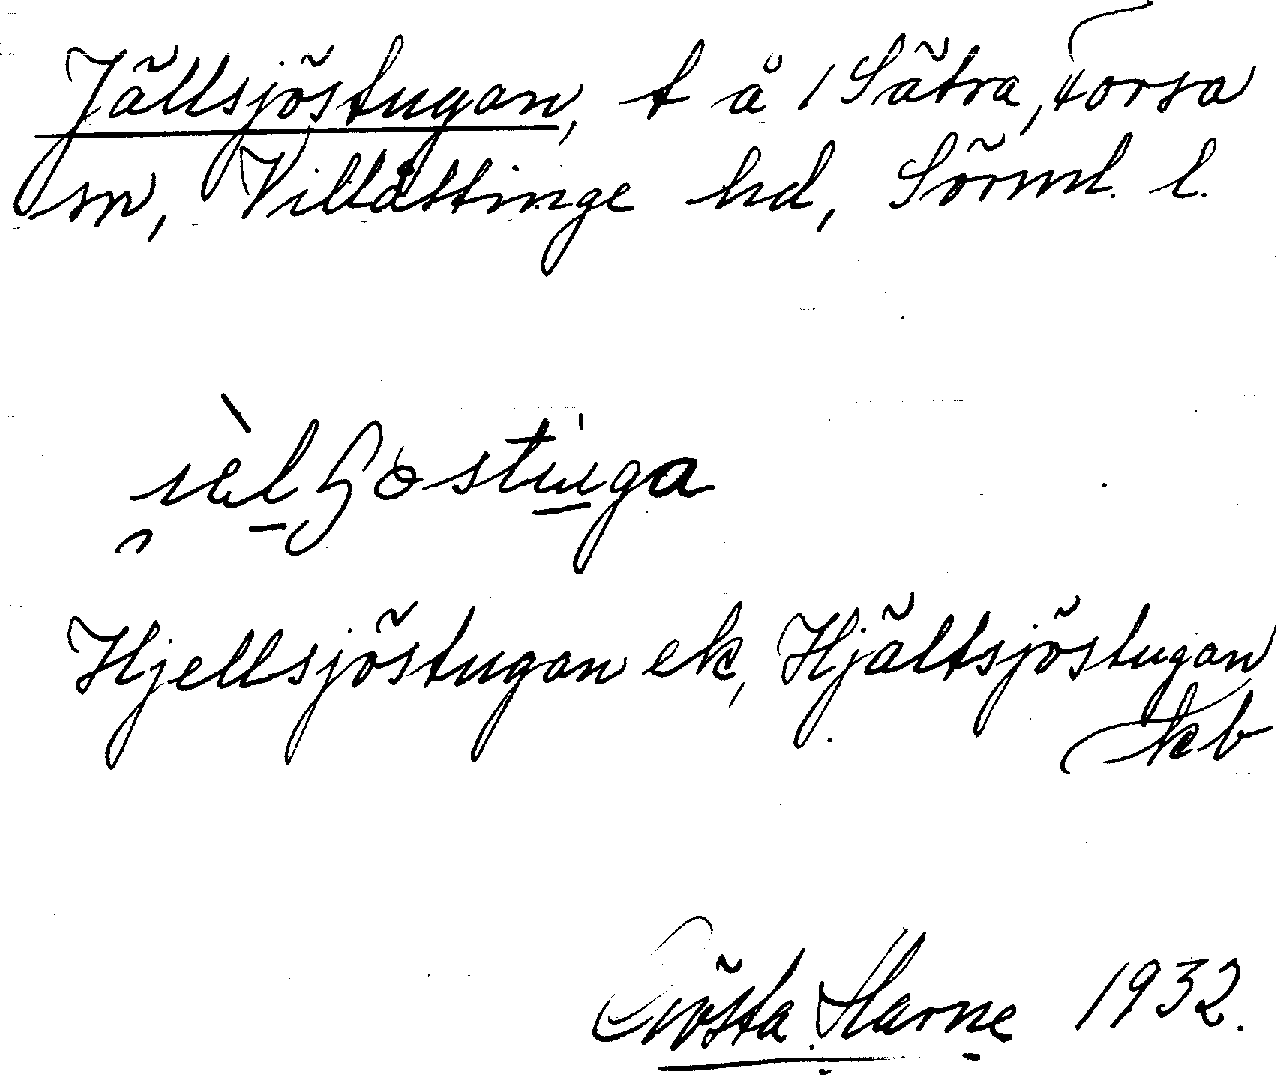 Jällsjöstugan, t å 1 Sätra, Torsa
sn, Villåttinge hd, Sörml. l.
Hjellsjöstugan ek, Hjältsjöstugan
kb
Gösta Harne 1932.